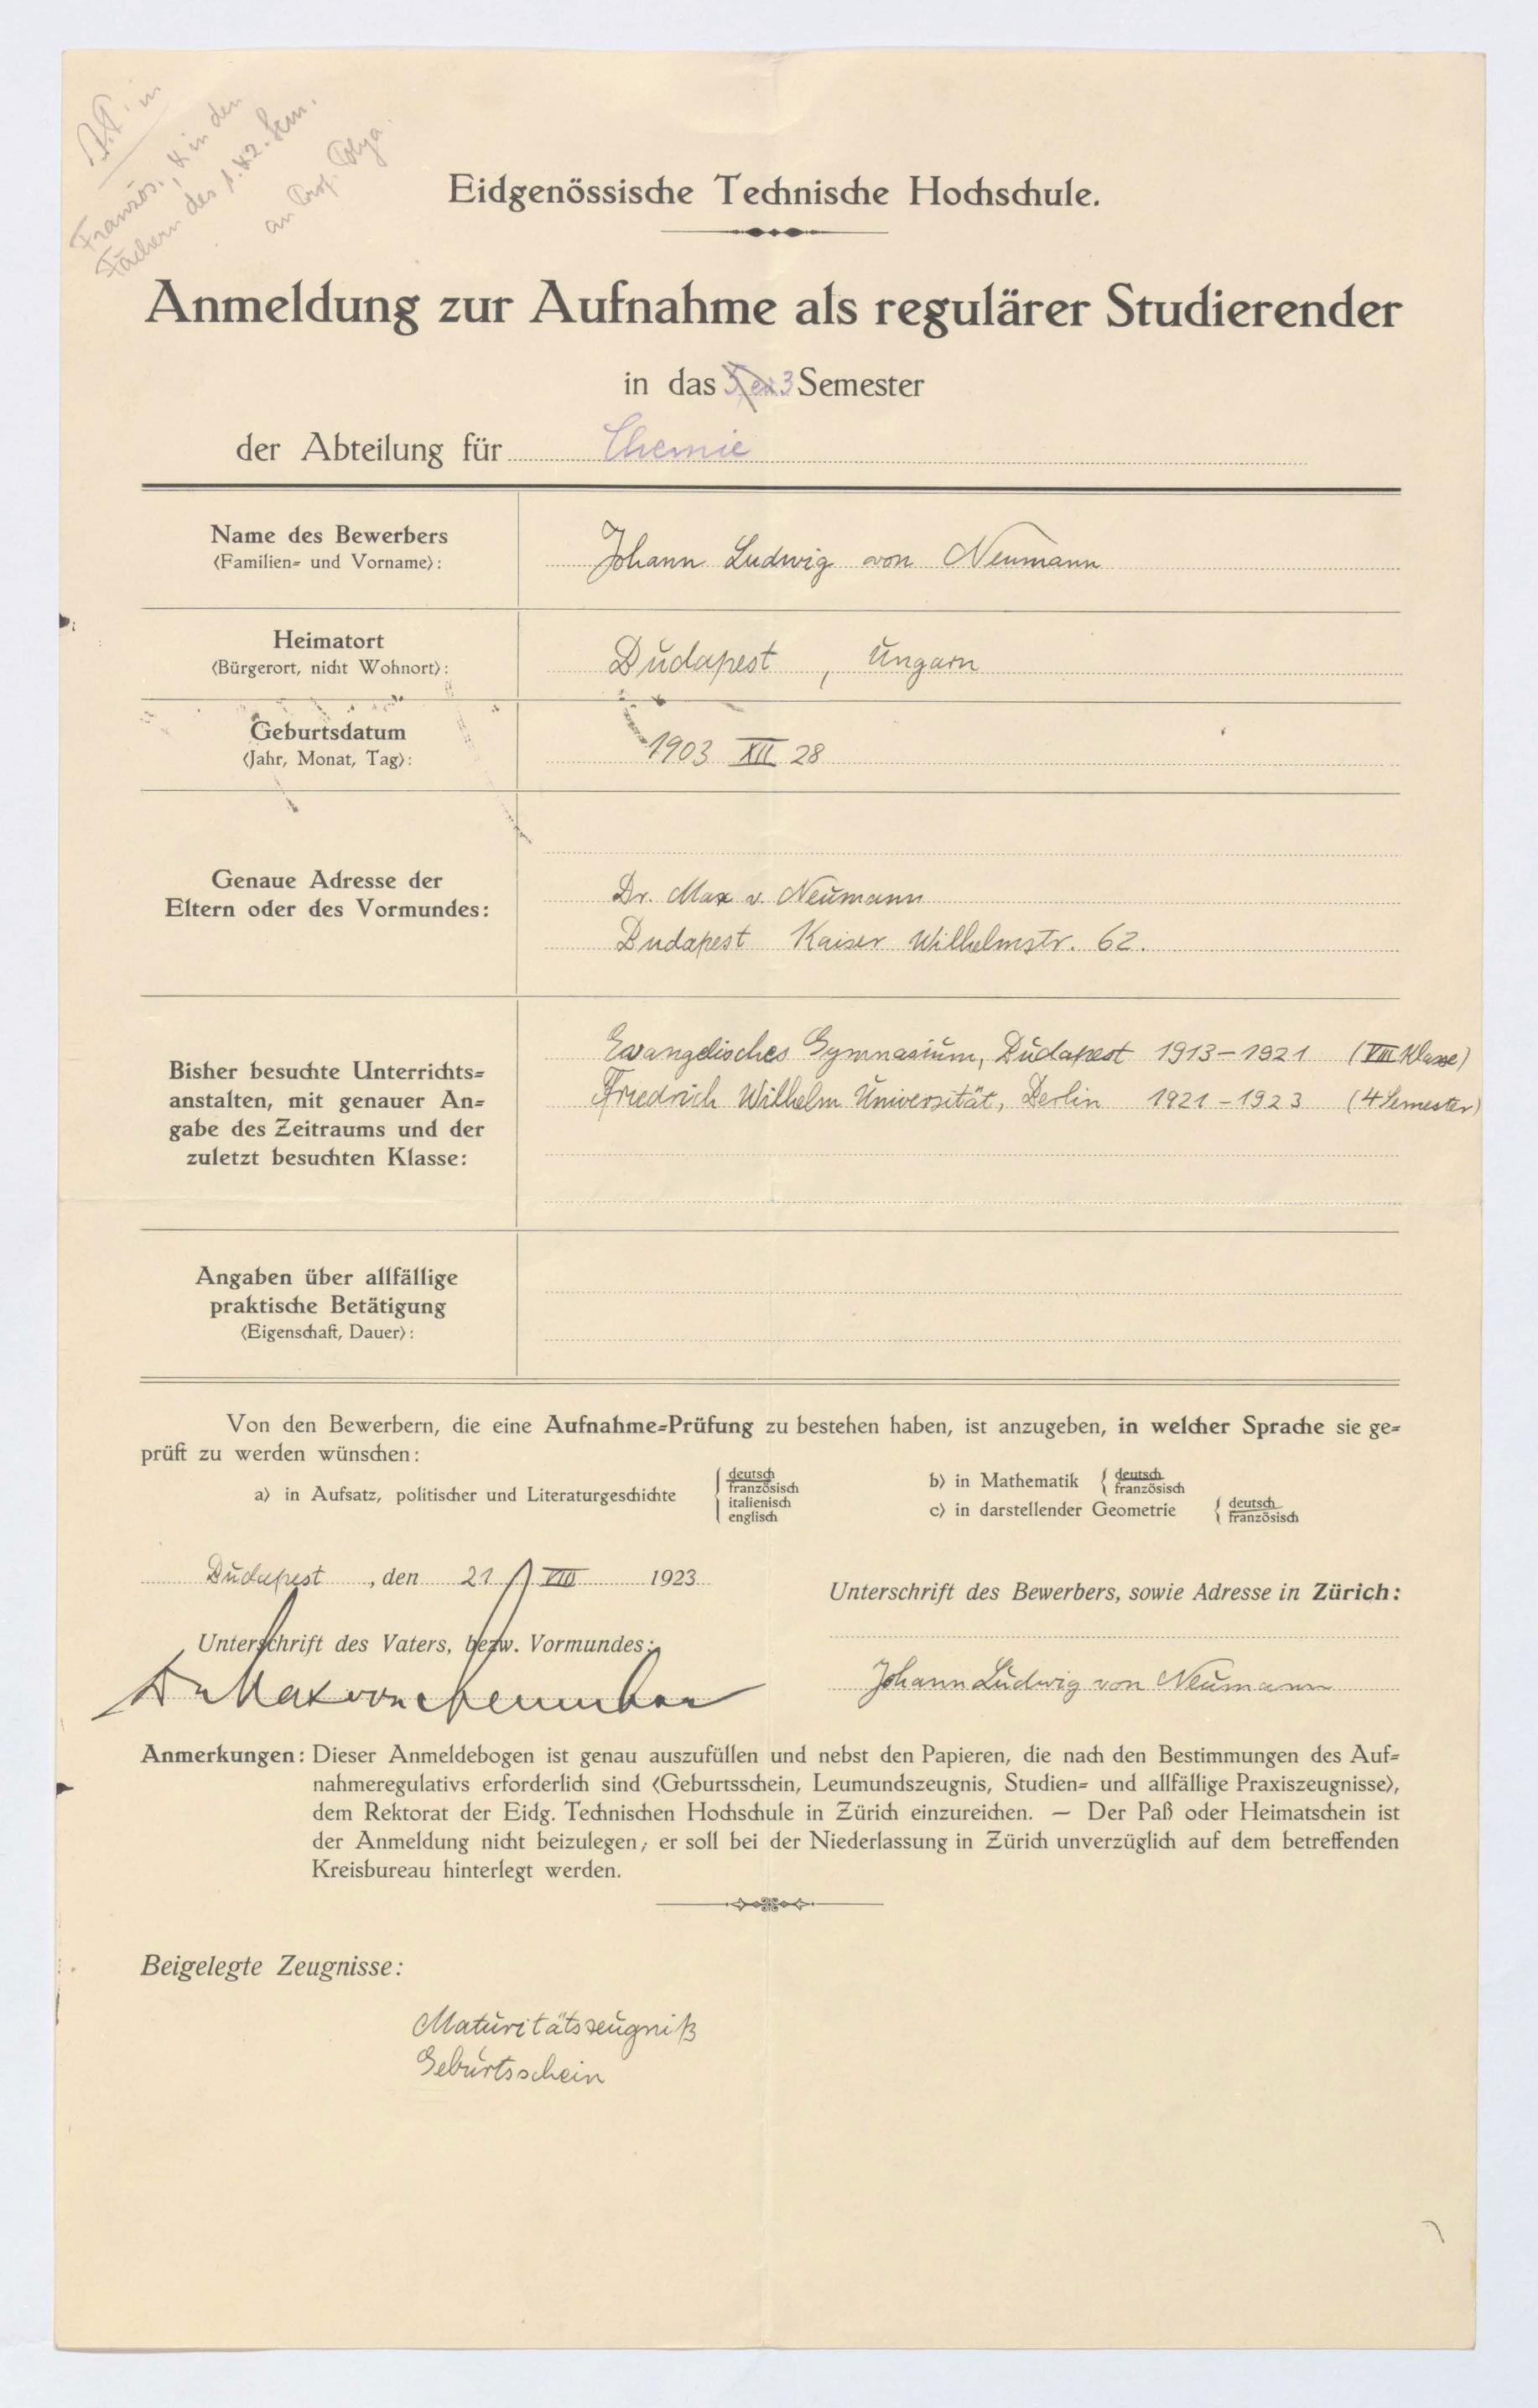 Französ. & in den
Fächern des 1. & 2. Sem.
an Prof. Polya.
Eidgenössische Technische Hochschule.
Anmeldung zur Aufnahme als regulärer Studierender
in das 3 Semester
der Abteilung für Chemie
Name des Bewerbers
(Familien= und Vorname):
Johann Ludwig von Neumann
Heimatort
(Bürgerort, nicht Wohnort):
Budapest, Ungarn
Geburtsdatum
(Jahr, Monat, Tag):
1903 XII 28
Genaue Adresse der
Eltern oder des Vormundes:
Dr. Max v. Neumann
Budapest Kaiser Wilhelmstr. 62.
Bisher besuchte Unterrichts=
anstalten, mit genauer An=
gabe des Zeitraums und der
zuletzt besuchten Klasse:
Evangelisches Gymnasium, Budapest 1913-1921 (VIII Klasse)
Friedrich Wilhelm Universität, Berlin 1921-1923 (4 Semester)
Angaben über allfällige
praktische Betätigung
(Eigenschaft, Dauer):
Von den Bewerbern, die eine Aufnahme=Prüfung zu bestehen haben, ist anzugeben, in welcher Sprache sie ge=
prüft zu werden wünschen:
a) in Aufsatz, politischer und Literaturgeschichte
deutsch
französisch
italienisch
englisch
b) in Mathematik
deutsch
französisch
c) in darstellender Geometrie
deutsch
französisch
Budapest, den 21 VIII 1923
Unterschrift des Vaters, bezw. Vormundes:
Dr Max von Neumann
Unterschrift des Bewerbers, sowie Adresse in Zürich:
Johann Ludwig von Neumann
Anmerkungen: Dieser Anmeldebogen ist genau auszufüllen und nebst den Papieren, die nach den Bestimmungen des Auf=
nahmeregulativs erforderlich sind (Geburtsschein, Leumundszeugnis, Studien= und allfällige Praxiszeugnisse),
dem Rektorat der Eidg. Technischen Hochschule in Zürich einzureichen. — Der Paß oder Heimatschein ist
der Anmeldung nicht beizulegen; er soll bei der Niederlassung in Zürich unverzüglich auf dem betreffenden
Kreisbureau hinterlegt werden.
Beigelegte Zeugnisse:
Maturitätszeugniß
Geburtsschein